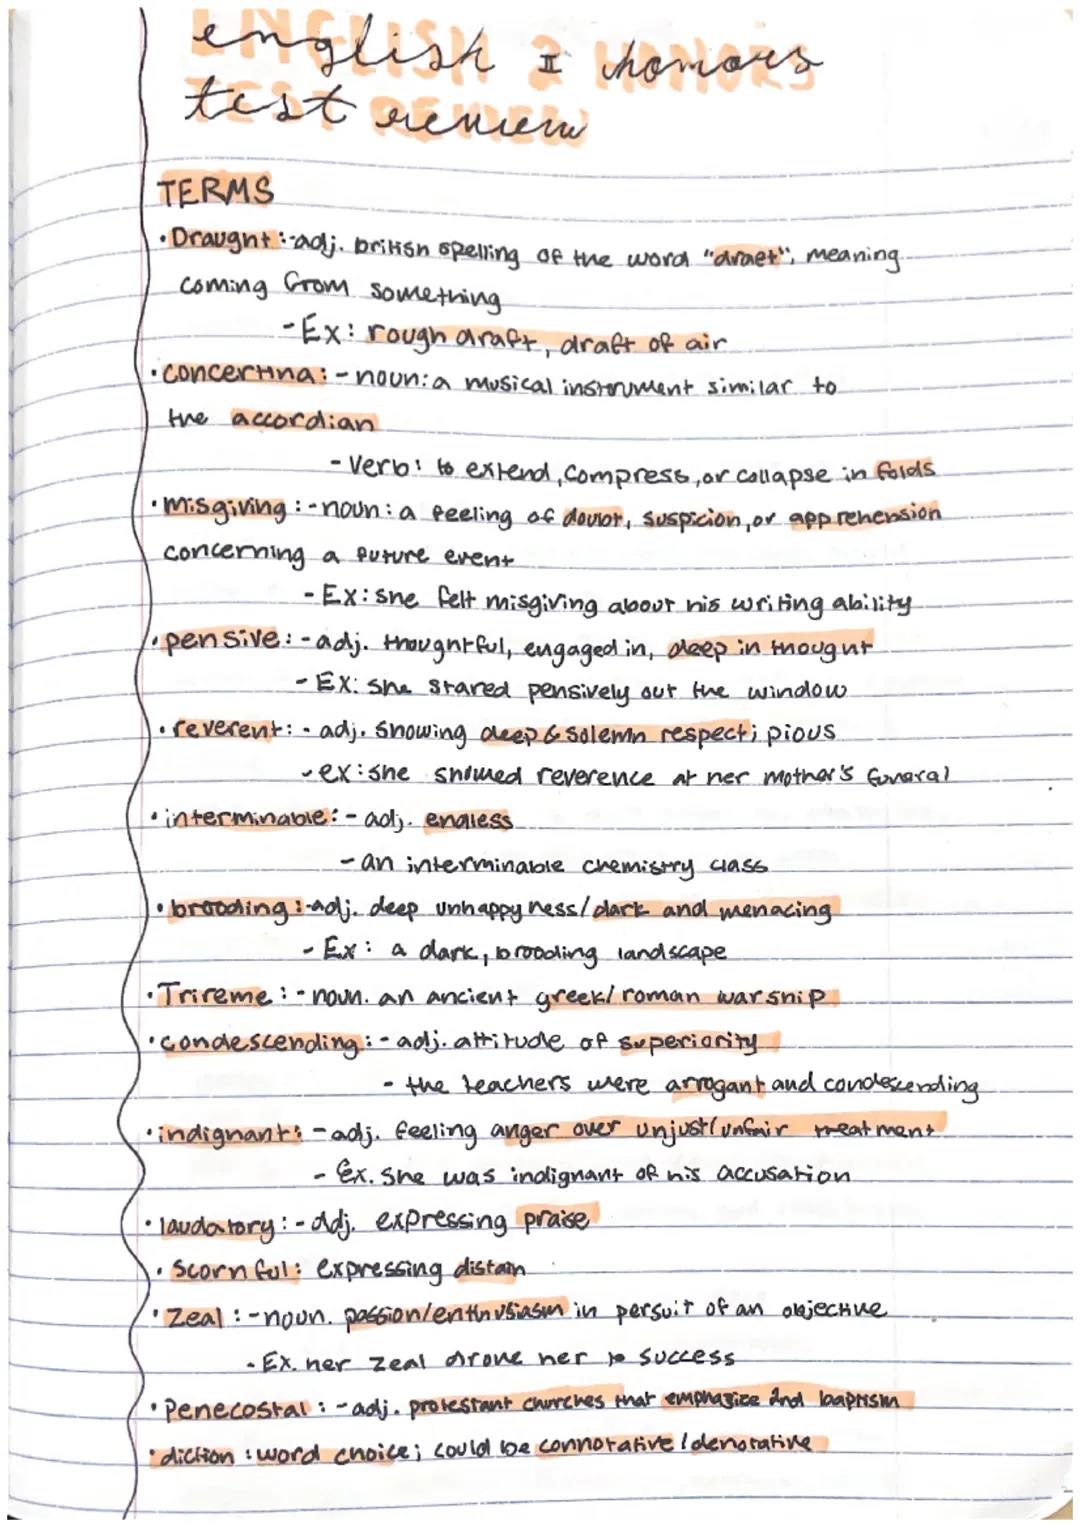 ENGLISH 2 HONORS
english I honors
TEST REVIEW
test review
TERMS
• Draught :-adj. british spelling of the word "draet", meaning
coming from something
- Ex: rough draft, draft of air
• concertina: - noun: a musical instrument similar to
the accordian
- Verb: to extend, compress, or collapse in folds
• misgiving : - noun: a feeling of doubt, suspicion, or apprehension
concerning a future event
- Ex: she felt misgiving about his writing ability
• pensive: - adj. thoughtful, engaged in, deep in thought
- EX: she stared pensively out the window
• reverent: - adj. showing deep & solemn respect; pious
- ex: she showed reverence at her mother's funeral
• interminable: - adj. endless
- an interminable chemistry class
• brooding :-adj. deep unhappyness/dark and menacing
- Ex: a dark, brooding landscape
• Trireme : - noun. an ancient greek/roman warship
• condescending: - adj. attitude of superiority
- the teachers were arrogant and condescending
• indignant: - adj. feeling anger over unjust/unfair treatment
- Ex. she was indignant of his accusation
• laudatory: - adj. expressing praise
• Scornful: expressing distain
• Zeal : - noun. passion/enthusiasm in persuit of an objective
- Ex. her zeal drove her to success
• Penecostal : - adj. protestant churches that emphasize 2nd baptism
• diction : word choice; could be connotative/denotative